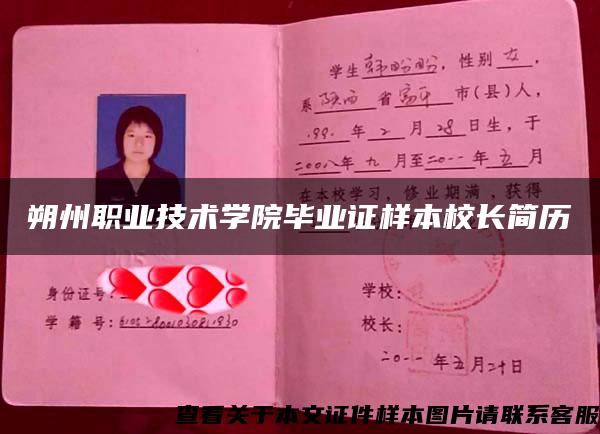 学生韩盼盼，性别女，
系陕西省富平市(县)人，
199 年2月28日生，于
二00八年九月至二0一一年五月
在本校学习，修业期满，获得
朔州职业技术学院毕业证样本校长简历
身份证号：
学籍号：
学校：
校长：
二0一一年五月二十日
查看关于本文证件样本图片请联系客服